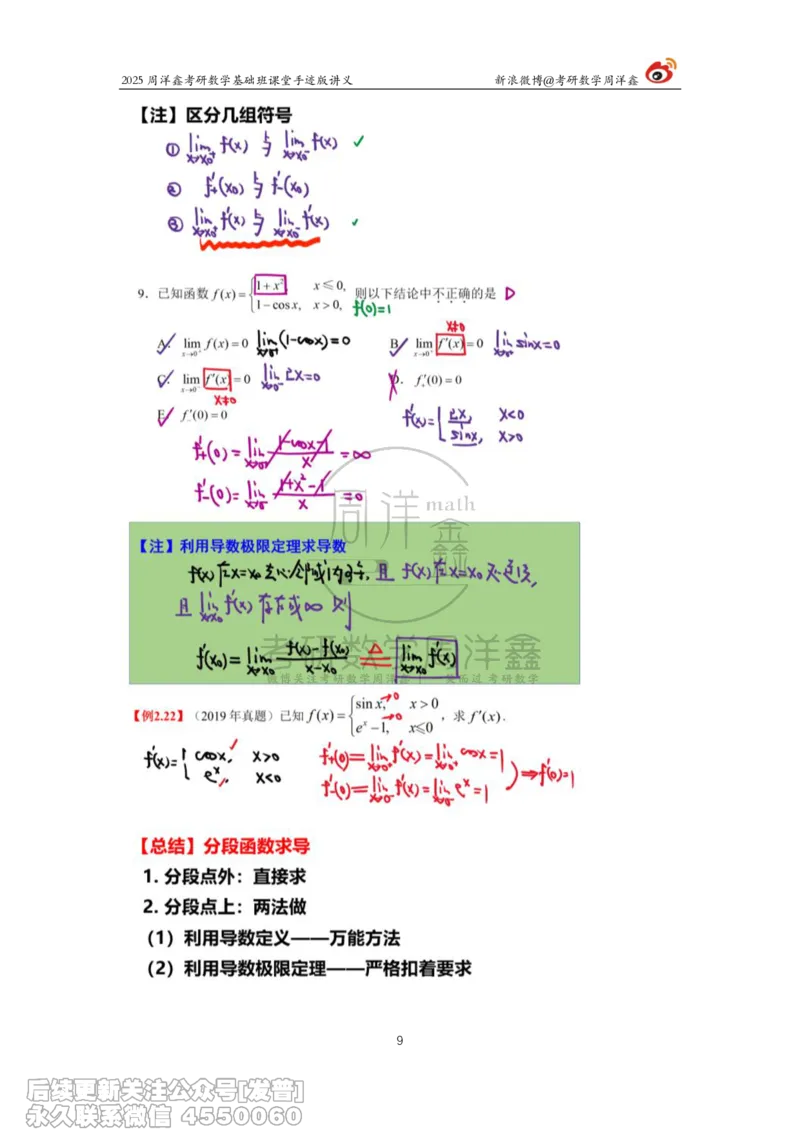 2025 周洋鑫考研数学基础班课堂手迹版讲义 新浪微博@考研数学周洋鑫
【注】区分几组符号
① lim x→x0+ f(x) 与 lim x→x0- f(x) ✓
② f'+(x0) 与 f'-(x0)
③ lim x→x0+ f'(x) 与 lim x→x0- f'(x) ✓
9. 已知函数 f(x) = { 1+x², x≤0, 1-cosx, x>0, 则以下结论中不正确的是 D
f(0)=1
A. lim x→0+ f(x) = 0 lim x→0+ (1-cosx)=0
x≠0
B. lim x→0+ f'(x) = 0 lim x→0+ sinx=0
C. lim x→0- f'(x) = 0 lim x→0- 2x=0
x≠0
D. f'+(0) = 0
E. f'-(0) = 0
f'(x)= { 2x, x<0 sinx, x>0
f'+(0) = lim x→0+ (1-cosx-1)/x = ∞
f'-(0) = lim x→0- (1+x²-1)/x = 0
周洋 math
鑫
【注】利用导数极限定理求导数
f(x)在x=x0去心邻域内可导,且 f(x)在x=x0处连续,
且 lim x→x0 f'(x) 存在或∞ 则
f'(x0) = lim x→x0 (f(x)-f(x0))/(x-x0) ≜ lim x→x0 f'(x)
考研数学周洋鑫
【例2.22】(2019年真题)已知 f(x) = { sin x, x>0 e^x-1, x≤0 ,求 f'(x).
→0
→0
f'(x)= { cosx, x>0 e^x, x<0
f'+(0) = lim x→0+ f'(x) = lim x→0+ cosx = 1
f'-(0) = lim x→0- f'(x) = lim x→0- e^x = 1
⇒ f'(0)=1
【总结】分段函数求导
1. 分段点外:直接求
2. 分段点上:两法做
(1)利用导数定义——万能方法
(2)利用导数极限定理——严格扣着要求
9
后续更新关注公众号[发普]
永久联系微信 4550060